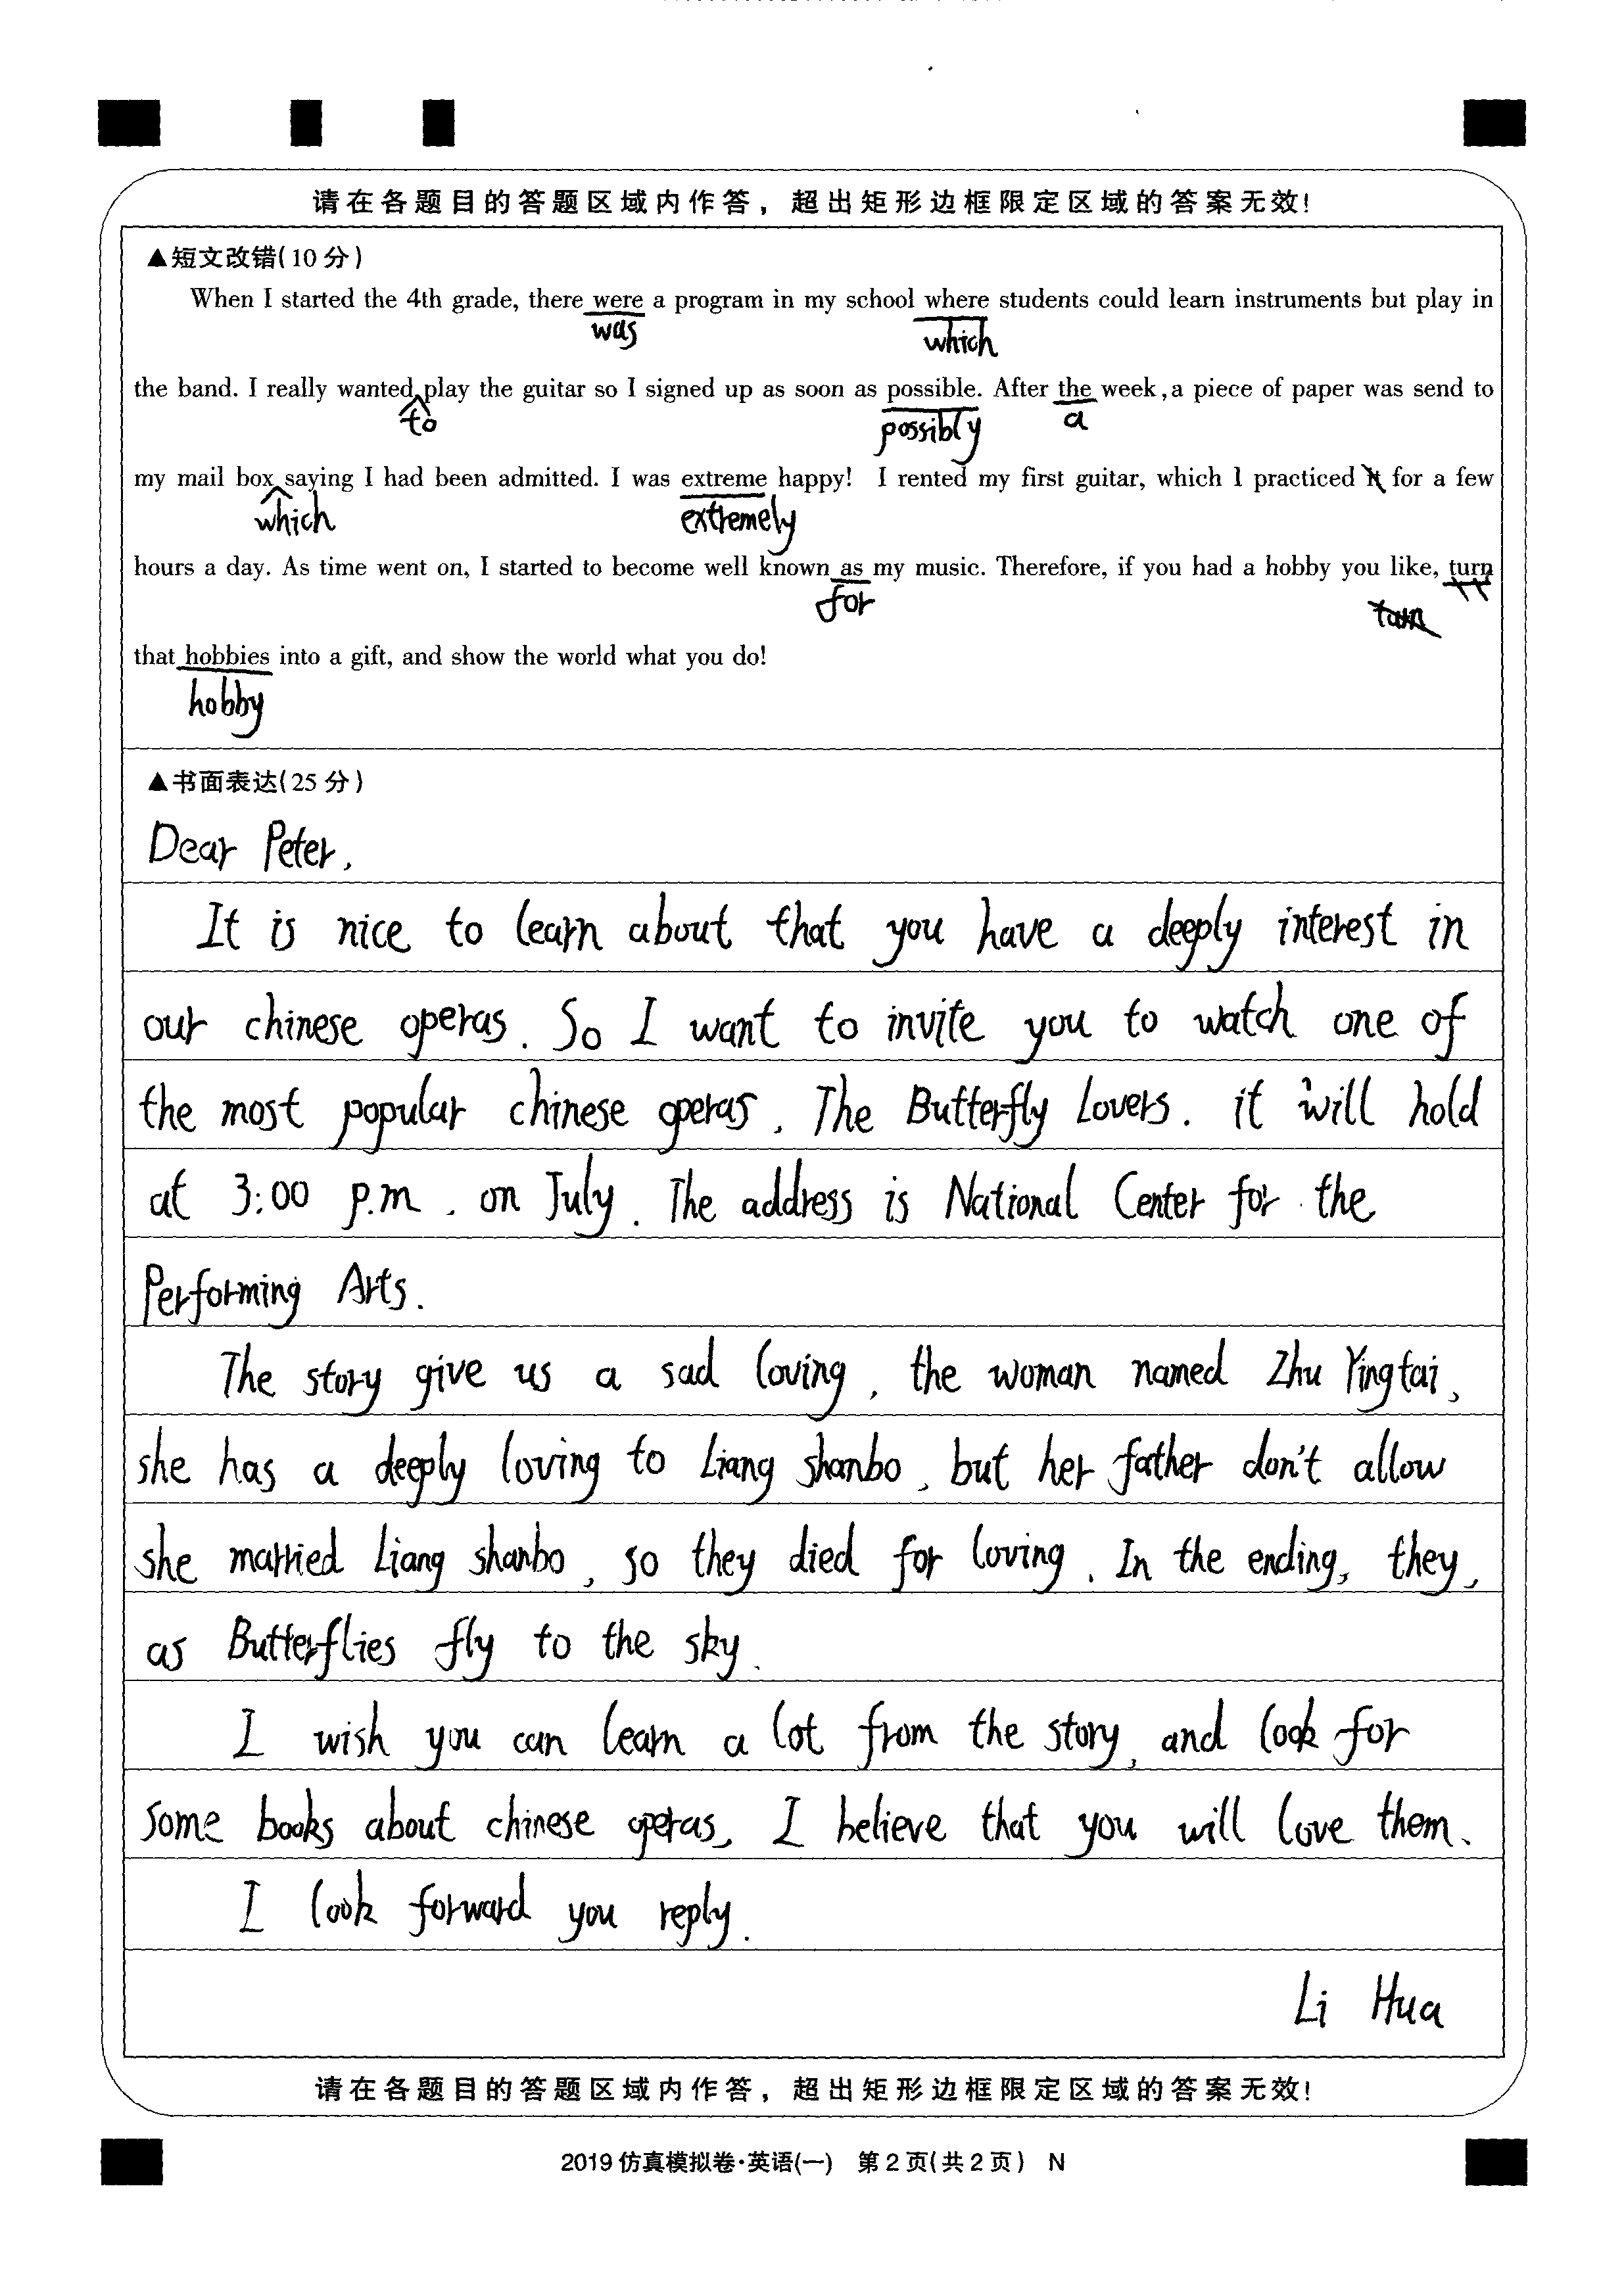 请在各题目的答题区域内作答，超出矩形边框限定区域的答案无效！
▲短文改错(10分)
When I started the 4th grade, there were a program in my school where students could learn instruments but play in
was which
the band. I really wanted play the guitar so I signed up as soon as possible. After the week, a piece of paper was send to
to possibly a
my mail box saying I had been admitted. I was extreme happy! I rented my first guitar, which I practiced it for a few
which extremely
hours a day. As time went on, I started to become well known as my music. Therefore, if you had a hobby you like, turn
for turn
that hobbies into a gift, and show the world what you do!
hobby
▲书面表达(25分)
Dear Peter,
It is nice to learn about that you have a deeply interest in
our chinese operas. So I want to invite you to watch one of
the most popular chinese operas, The Butterfly Lovers. it will hold
at 3:00 p.m. on July. The address is National Center for the
Performing Arts.
The story give us a sad loving, the woman named Zhu Yingtai,
she has a deeply loving to Liang shanbo, but her father don't allow
she married Liang shanbo, so they died for loving. In the ending, they,
as Butterflies fly to the sky.
I wish you can learn a lot from the story, and look for
some books about chinese operas, I believe that you will love them.
I look forward you reply.
Li Hua
请在各题目的答题区域内作答，超出矩形边框限定区域的答案无效！
2019仿真模拟卷·英语(一) 第2页(共2页) N